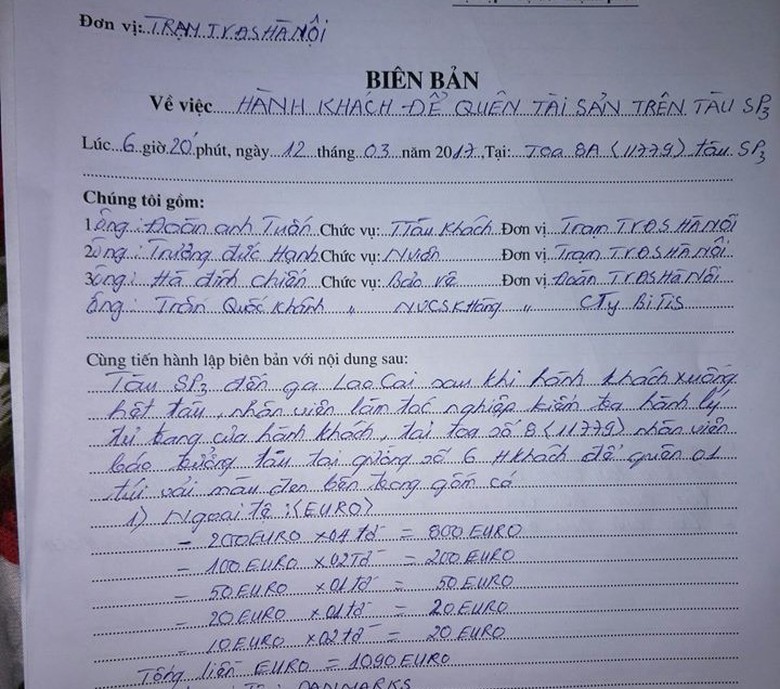 Đơn vị: TRẠM TVĐS HÀ NỘI
BIÊN BẢN
Về việc HÀNH KHÁCH ĐỂ QUÊN TÀI SẢN TRÊN TÀU SP3
Lúc 6 giờ 20 phút, ngày 12 tháng 03 năm 2017, Tại: Toa 8A (11779) tàu SP3
Chúng tôi gồm:
1 Ông: Đoàn anh Tuấn Chức vụ: TTàu Khách Đơn vị Trạm TVĐS HÀ NỘI
2 ông: Trưởng đức Hạnh Chức vụ: Nviên Đơn vị Trạm TVĐS HÀ NỘI
3 ông: Hà đình chiến Chức vụ: Bảo vệ Đơn vị Đoàn TVĐS Hà Nội
ông: Trần Quốc Khánh " NVCSKHàng " CTy BiTiS
Cùng tiến hành lập biên bản với nội dung sau:
Tàu SP3 đến ga Lao Cai sau khi hành khách xuống
hết tàu, nhân viên làm tác nghiệp kiểm tra hành lý
tư trang của hành khách, tại toa số 8 (11779) nhân viên
báo trưởng tàu tại giường số 6 HKhách để quên 01
túi vải màu đen bên trong gồm có
1) Ngoại tệ: (EURO)
- 200EURO x04 tờ = 800 EURO
- 100 EURO x02Tờ = 200 EURO
- 50 EURO x01tờ = 50 EURO
- 20 EURO x01tờ = 20 EURO
- 10EURO x02 tờ = 20 EURO
Tổng tiền EURO = 1090 EURO
DANMARKS